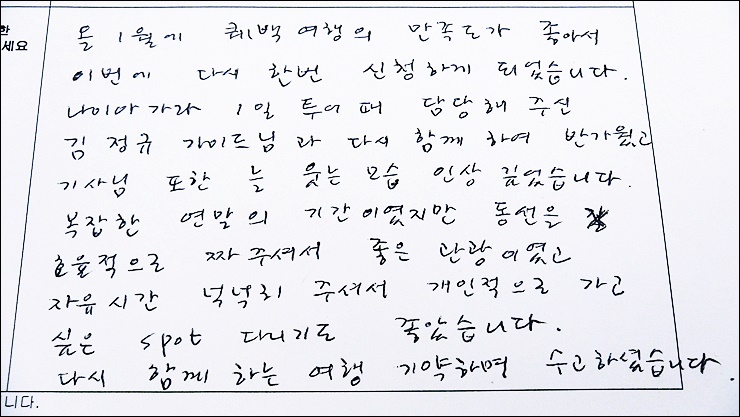 한
세요
올 1월에 퀘백여행의 만족도가 좋아서
이번에 다시 한번 신청하게 되었습니다.
나이아가라 1일 투어 때 담당해 주신
김정규 가이드님과 다시 함께 하여 반가웠고
기사님 포한 늘 웃는 모습 인상 깊었습니다.
복잡한 연말의 기간이였지만 동선을
효율적으로 짜주셔서 좋은 관광이였고
자유시간 넉넉히 주셔서 개인적으로 가고
싶은 spot 다니기도 좋았습니다.
다시 함께 하는 여행 기약하며 수고하셨습니다.
니다.